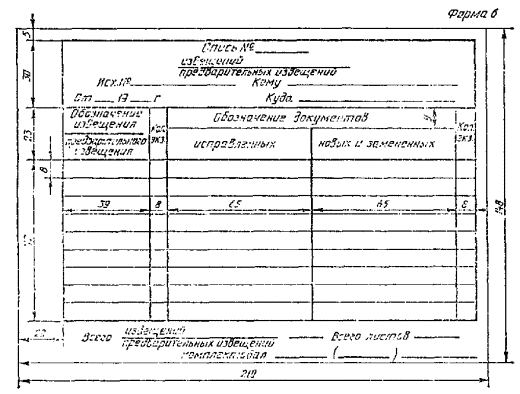 Форма 6
Опись №
извещений
предварительных извещений
Исх.№ Кому
От 19 г Куда
Обозначение извещения
предварительного извещения
Кол. экз.
Обозначение документов
исправленных
новых и замененных
Кол. экз.
5
30
23
8
39 8 65 65 8
148
Всего извещений
предварительных извещений
Всего листов
комплектовал ( )
210